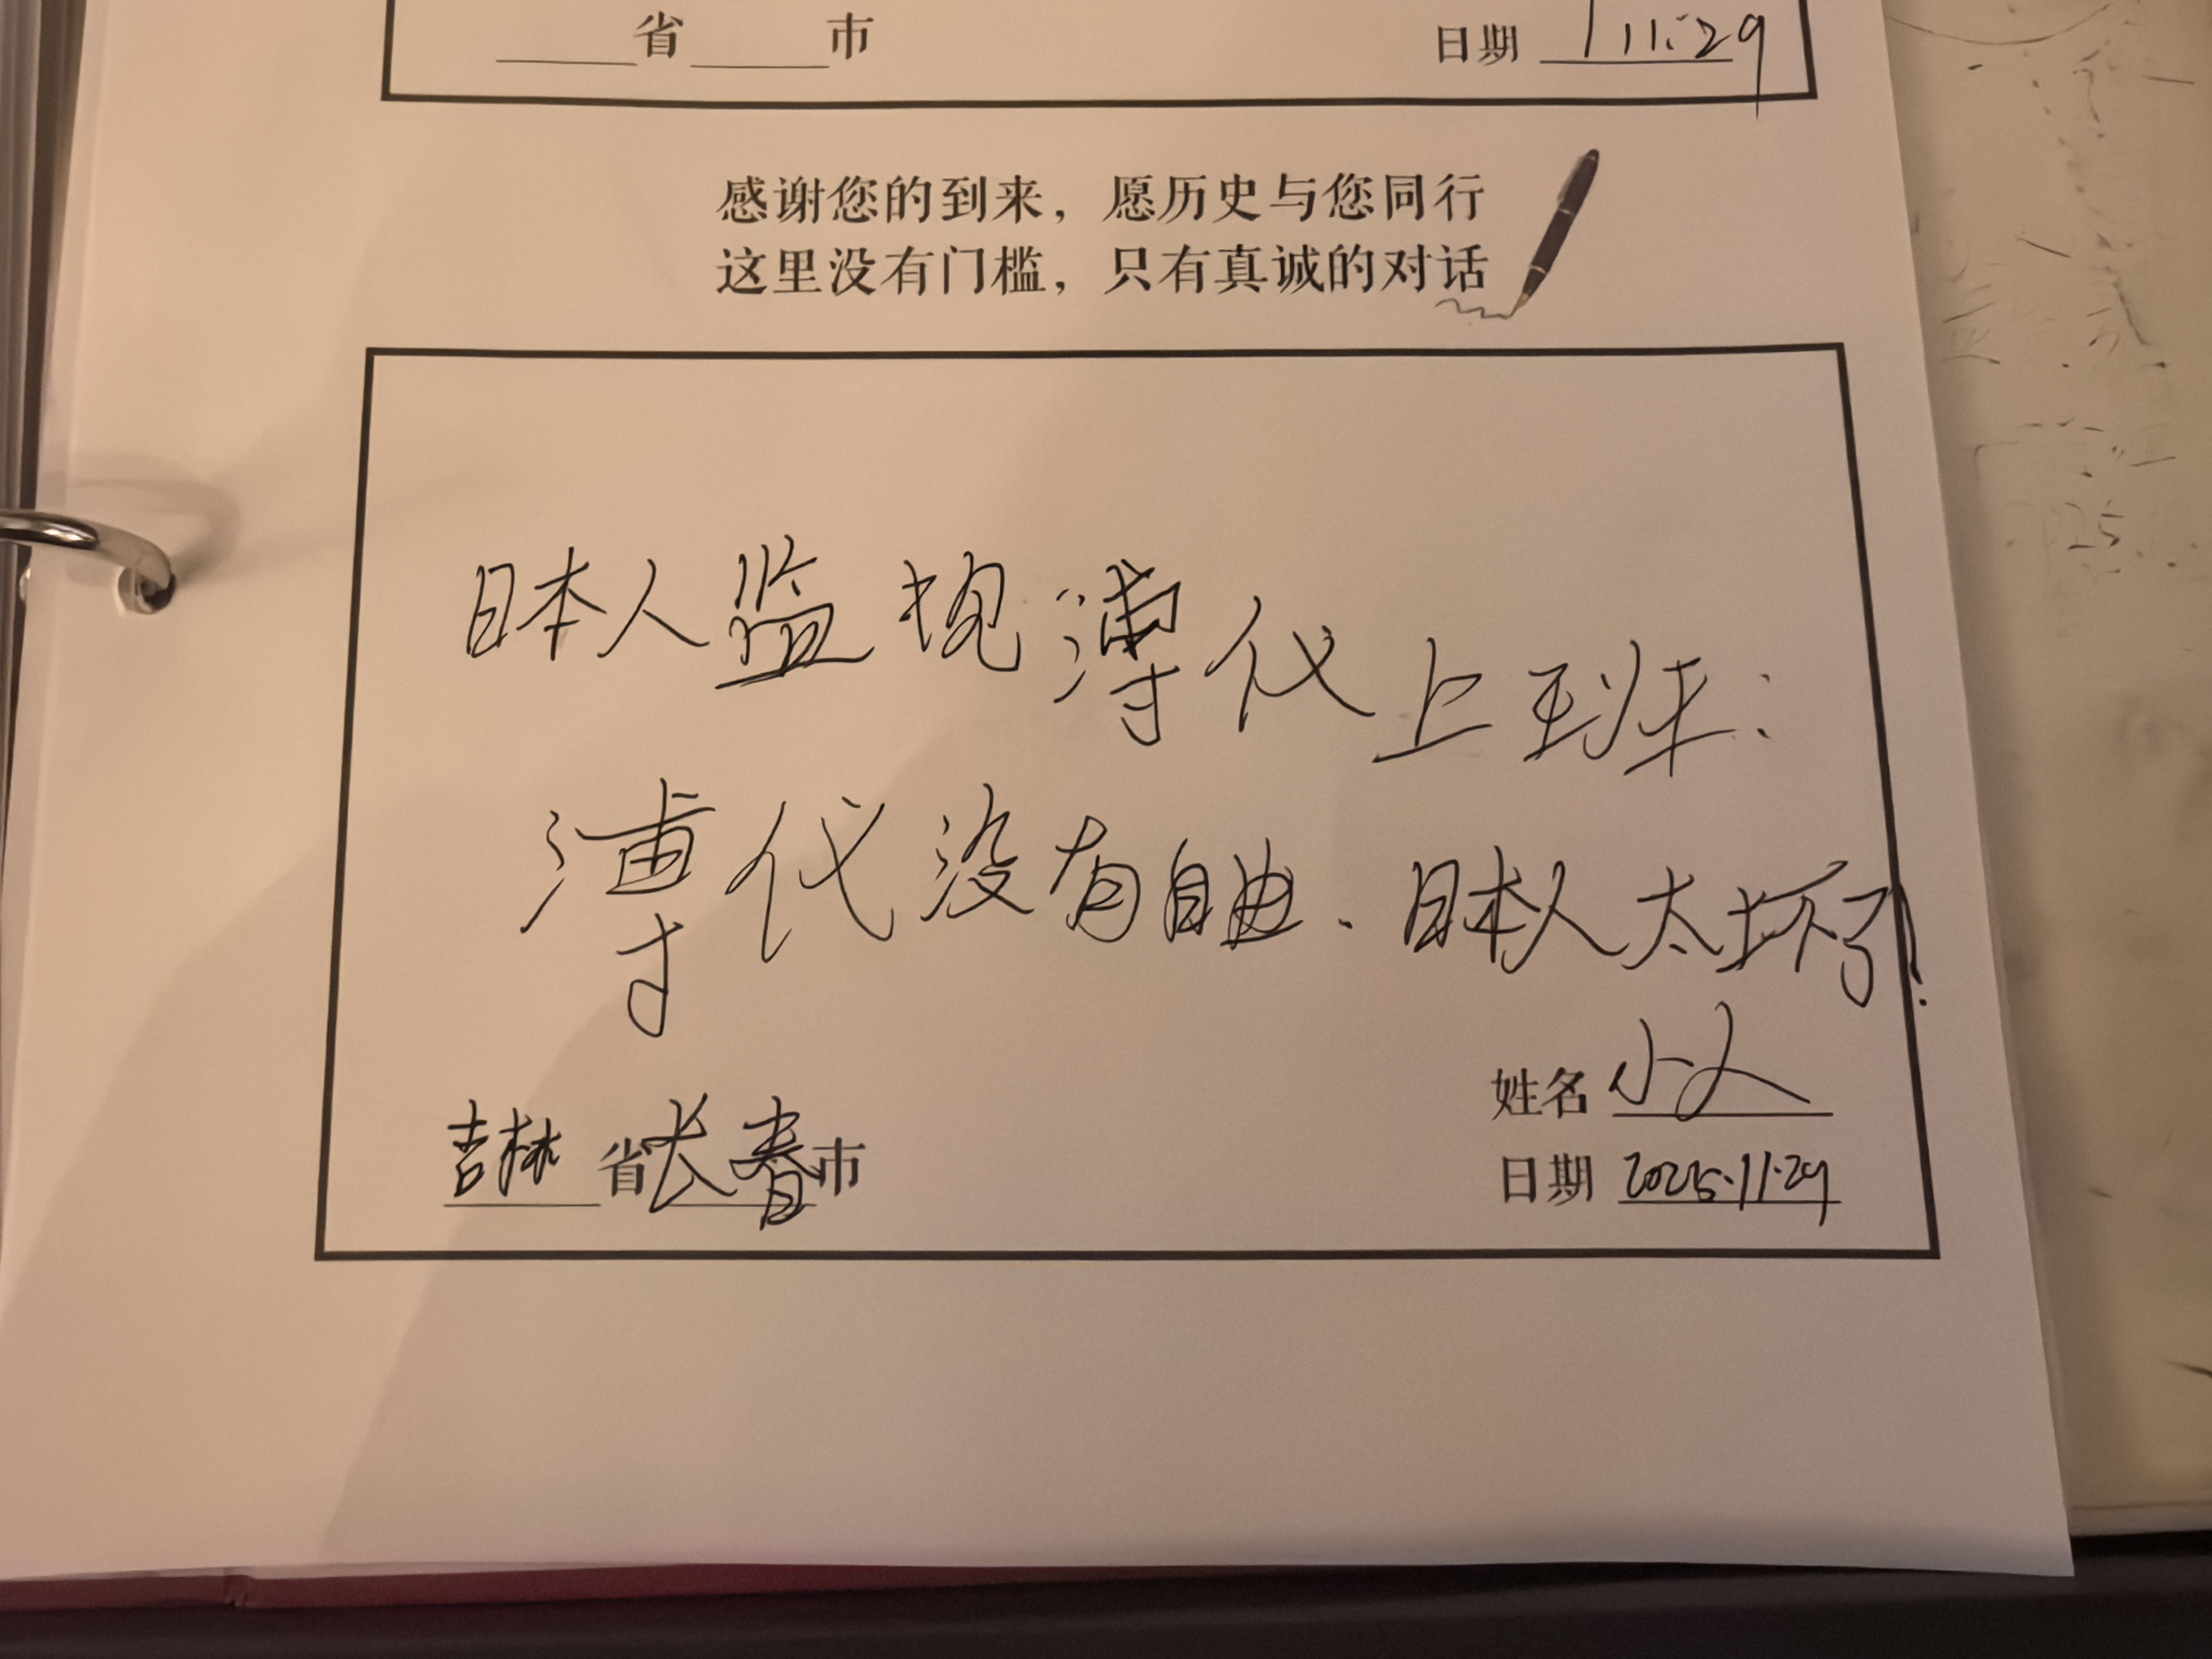 省 市 日期 11.29
感谢您的到来，愿历史与您同行
这里没有门槛，只有真诚的对话
日本人监视溥仪上班：
溥仪没有自由.日本人太坏了!
姓名 小人
吉林 省 长春 市 日期 2025.11.29